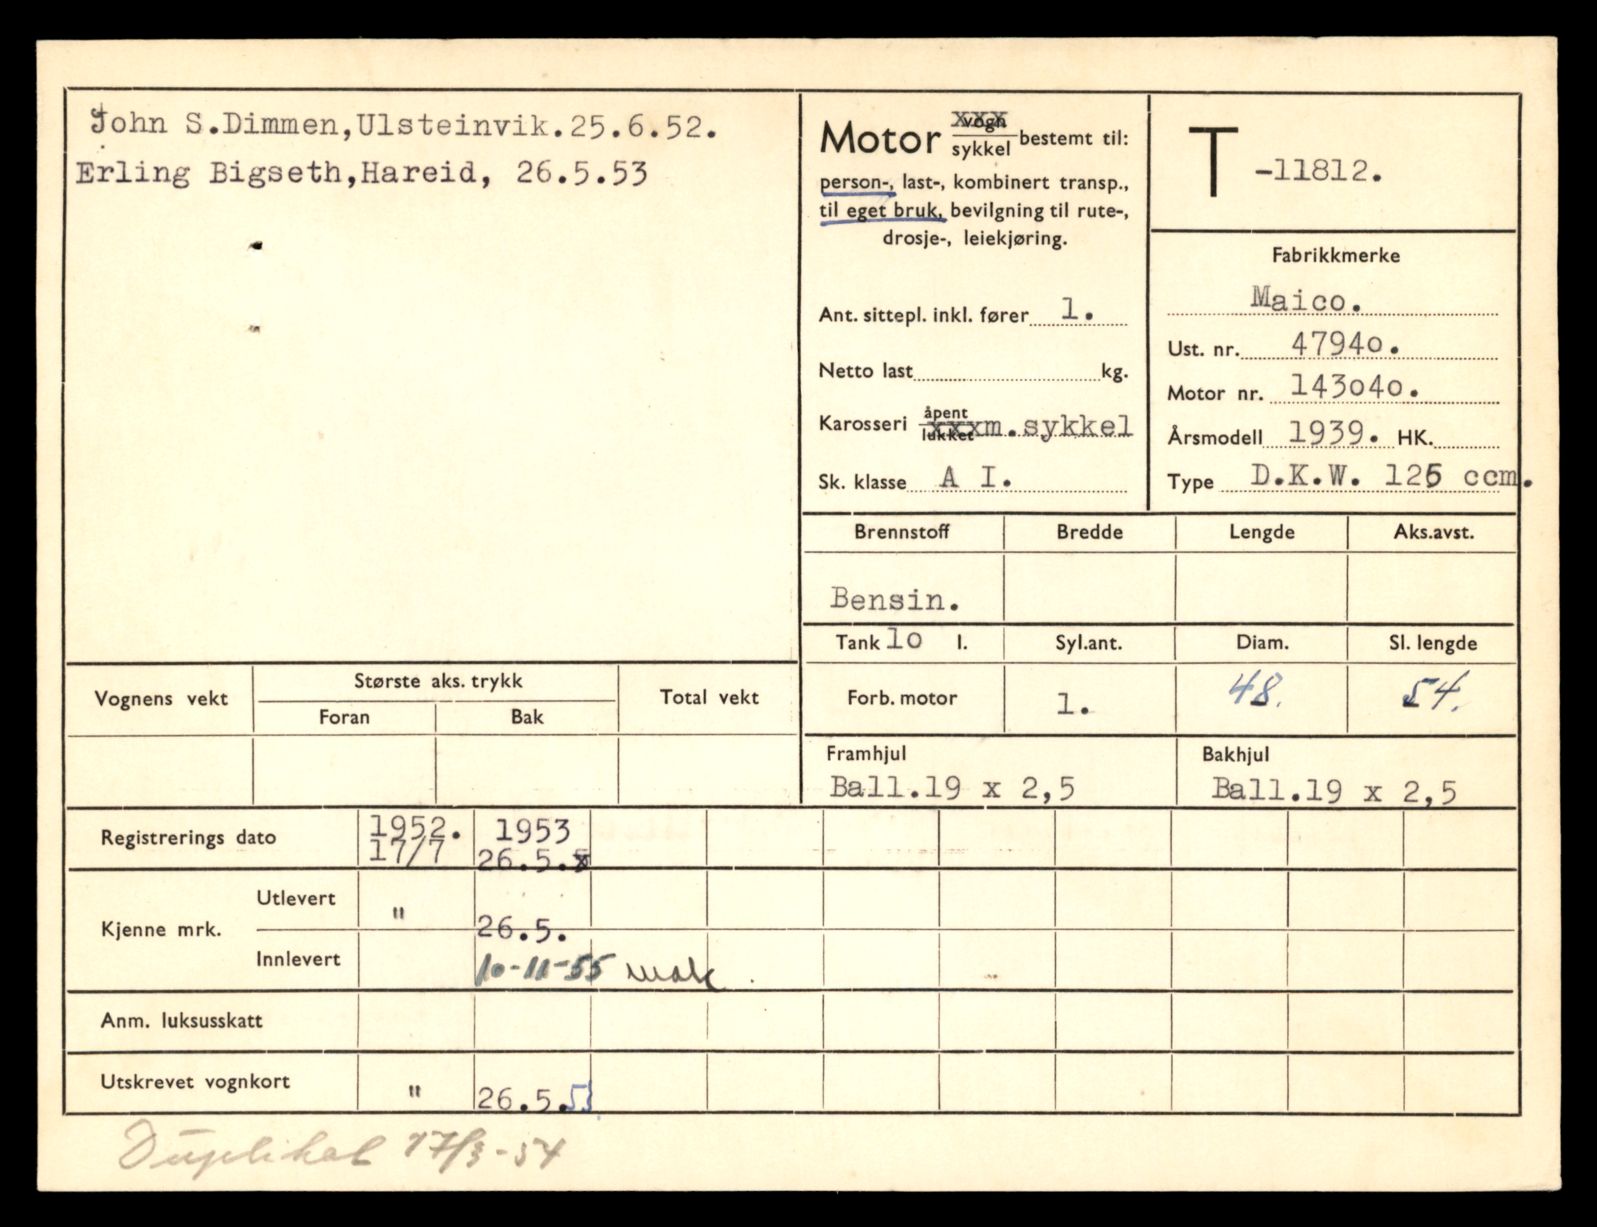 John S.Dimmen,Ulsteinvik.25.6.52.
Erling Bigseth,Hareid, 26.5.53
Motor vogn sykkel bestemt til:
person-, last-, kombinert transp.,
til eget bruk, bevilgning til rute-,
drosje-, leiekjøring.
Ant. sittepl. inkl. fører 1.
Netto last kg.
Karosseri åpent lukket xxx m.sykkel
Sk. klasse A I.
T -11812.
Fabrikkmerke
Maico.
Ust. nr. 4794o.
Motor nr. 143o4o.
Årsmodell 1939. HK.
Type D.K.W. 125 ccm.
Brennstoff Bredde Lengde Aks.avst.
Bensin.
Tank 1o l. Syl.ant. Diam. Sl. lengde
Forb. motor 1. 48. 54.
Framhjul Bakhjul
Ball.19 x 2,5 Ball.19 x 2,5
Vognens vekt Største aks. trykk Total vekt
Foran Bak
Registrerings dato 1952. 1953
17/7 26.5.
Kjenne mrk. Utlevert " 26.5.
Innlevert 10-11-55
Anm. luksusskatt
Utskrevet vognkort " 26.5.53
Duplikat 17/3-54